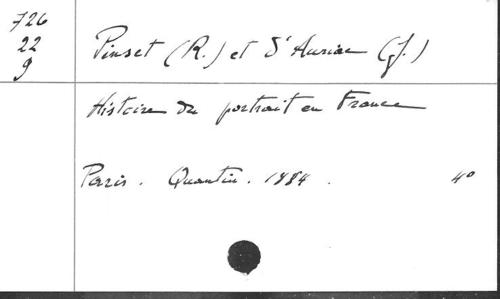 726
22
9
Pinset (R.) et d'Auriac (J.)
Histoire du portrait en France
Paris. Quantin. 1884. 4°